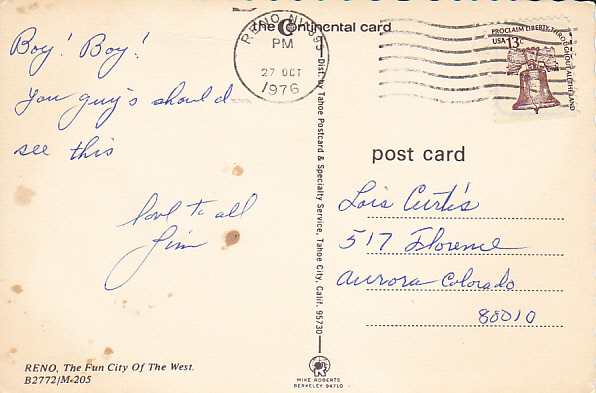 Boy! Boy!
You guy's should
see this
love to all
Jim
RENO, The Fun City Of The West.
B2772/M-205
the Continental card
RENO, NV 895
PM
27 OCT
1976
PROCLAIM LIBERTY THROUGHOUT ALL THE LAND
USA 13c
Dist. by Tahoe Postcard & Specialty Service, Tahoe City, Calif. 95730
post card
Lois Curtis
517 Florence
Aurora Colorado
80010
MIKE ROBERTS
BERKELEY 94710